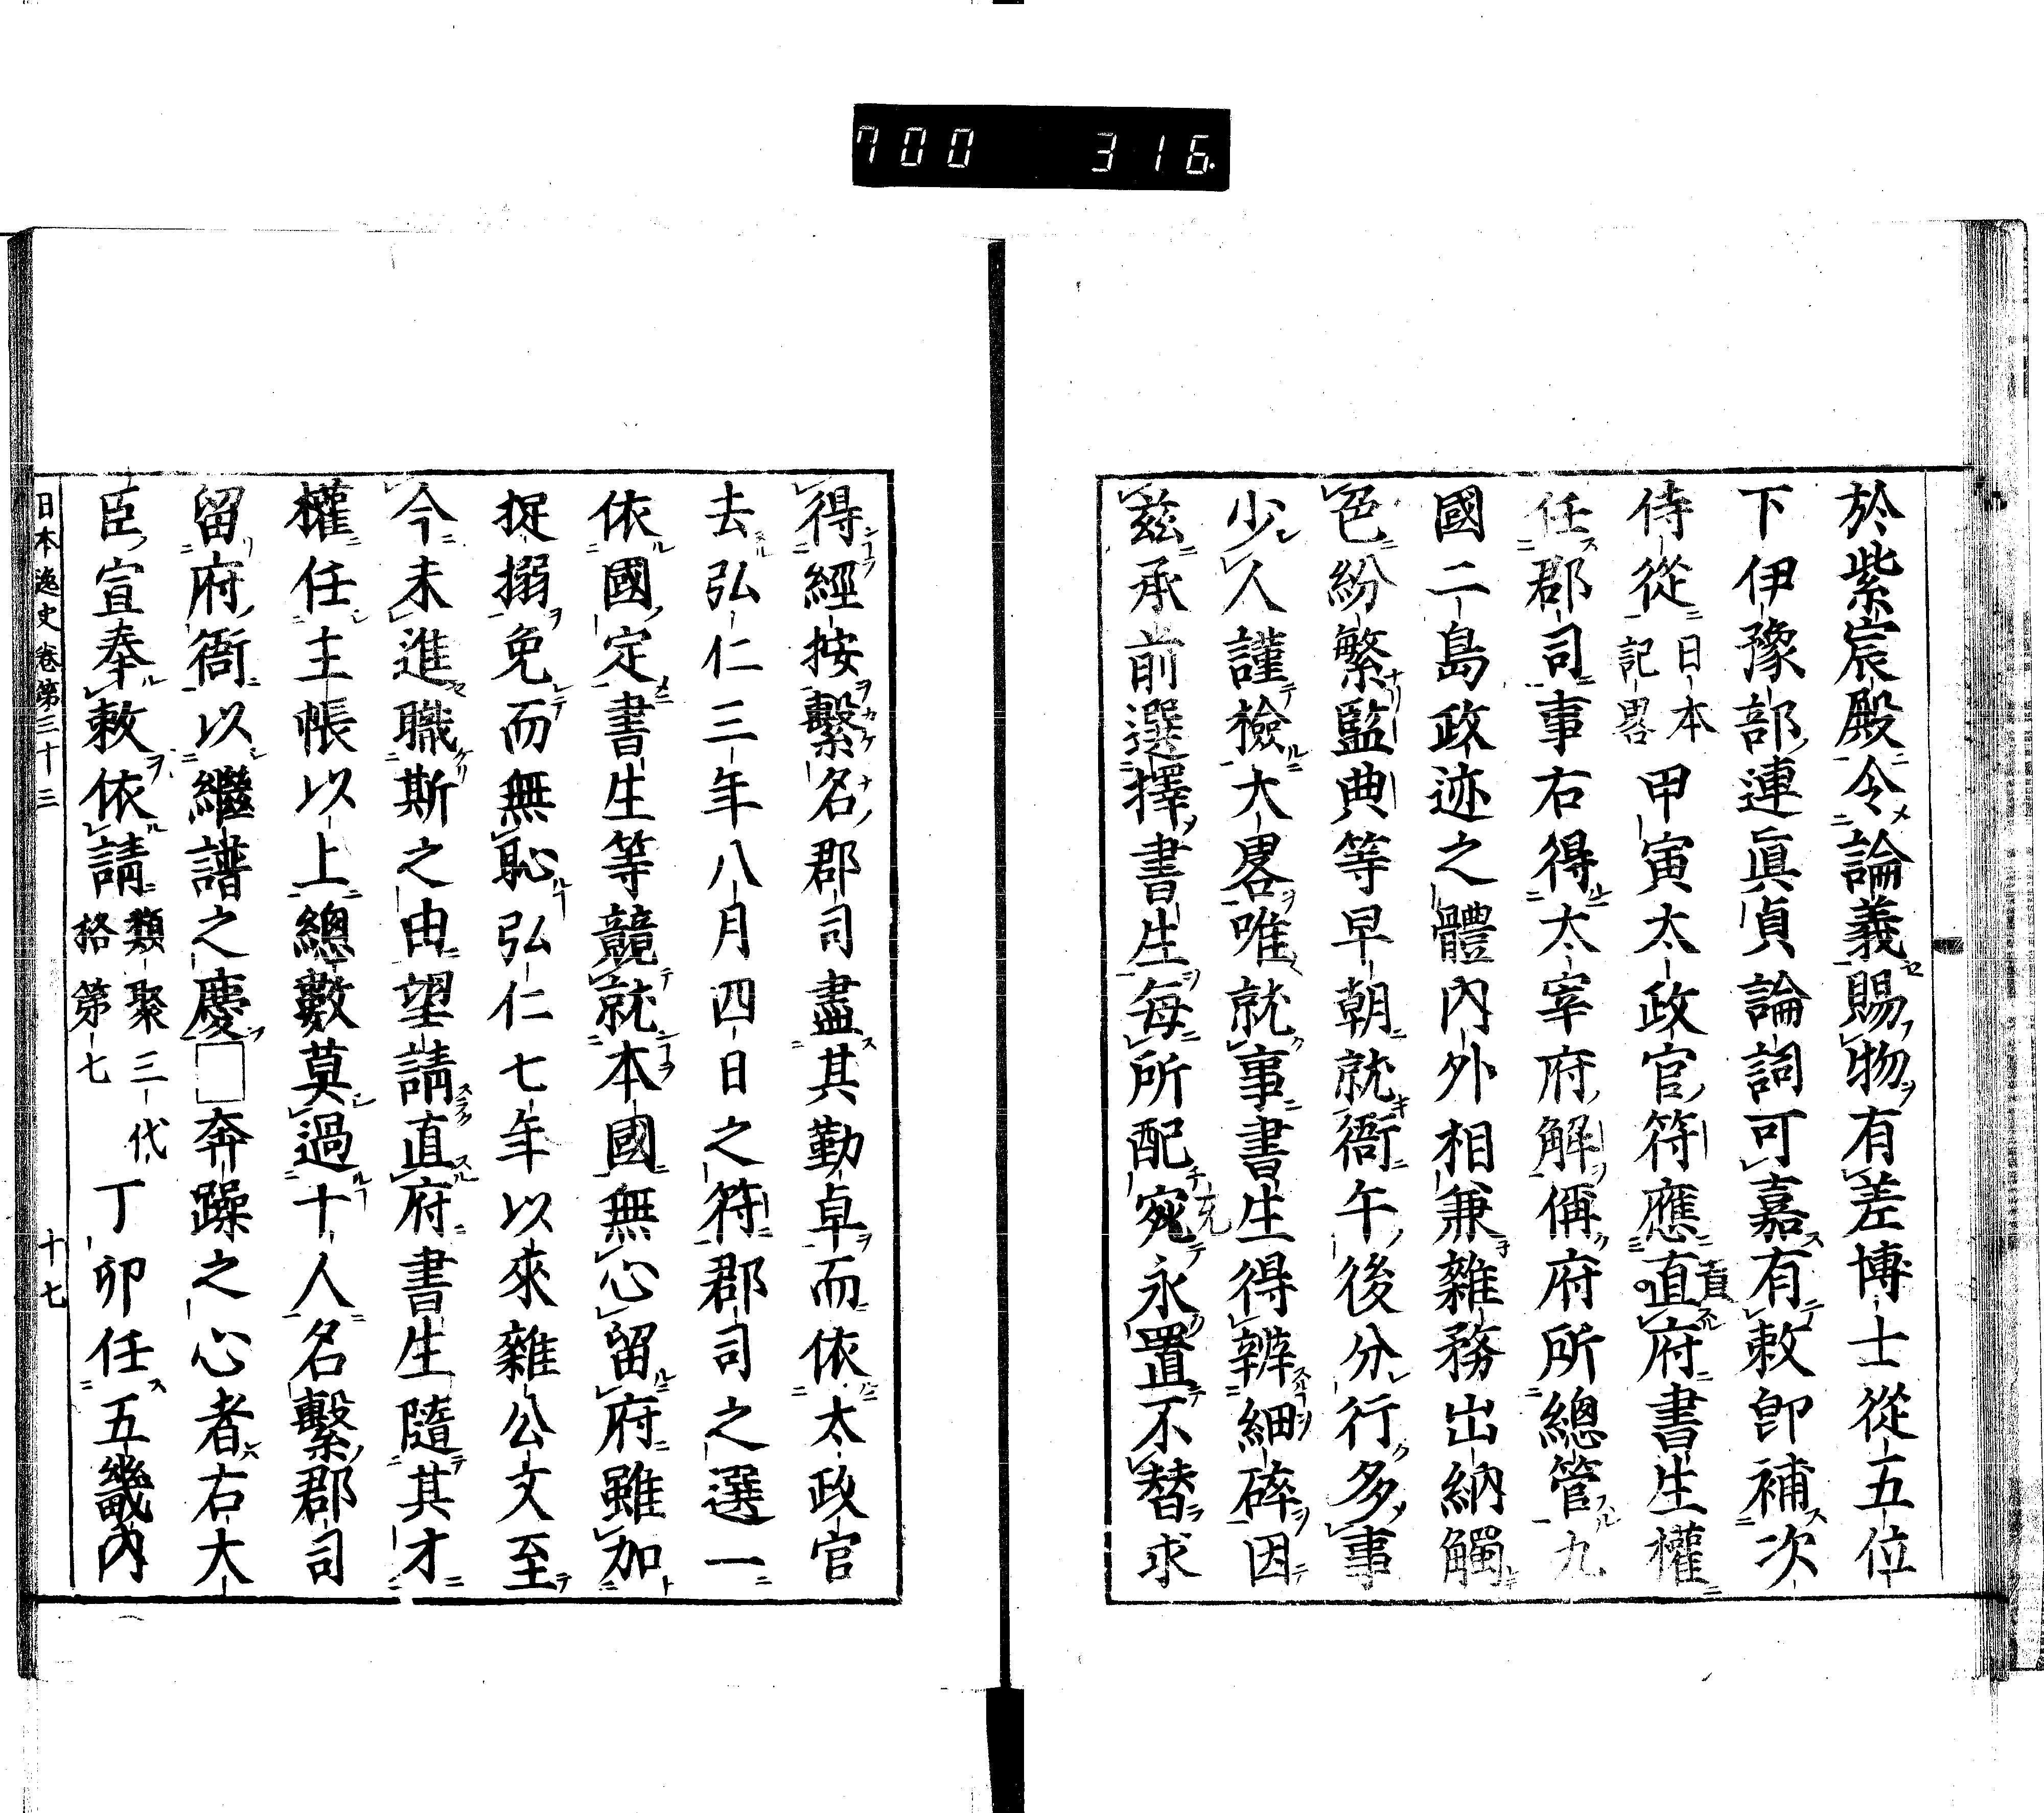 700 316
於紫宸殿令論義賜物有差博士從五位
下伊豫部連眞貞論詞可嘉有敕卽補次
侍從日本記畧甲寅太政官符應直府書生權
任郡司事右得太宰府解偁府所總管九
國二島政迹之體內外相兼雜務出納觸
色紛繁監典等早朝就衙午後分行多事
少人謹檢大畧唯就事書生得辨細碎因
兹承前選擇書生每所配宛永置不替求
得經按繫名郡司盡其勤卓而依太政官
去弘仁三年八月四日之符郡司之選一
依國定書生等競就本國無心留府雖加
捉搦免而無恥弘仁七年以來雜公文至
今未進職斯之由望請直府書生隨其才
權任主帳以上總數莫過十人名繫郡司
留府衙以繼譜之慶□奔躁之心者右大
臣宣奉敕依請類聚三代格第七丁卯任五畿內
日本逸史卷第三十三 十七